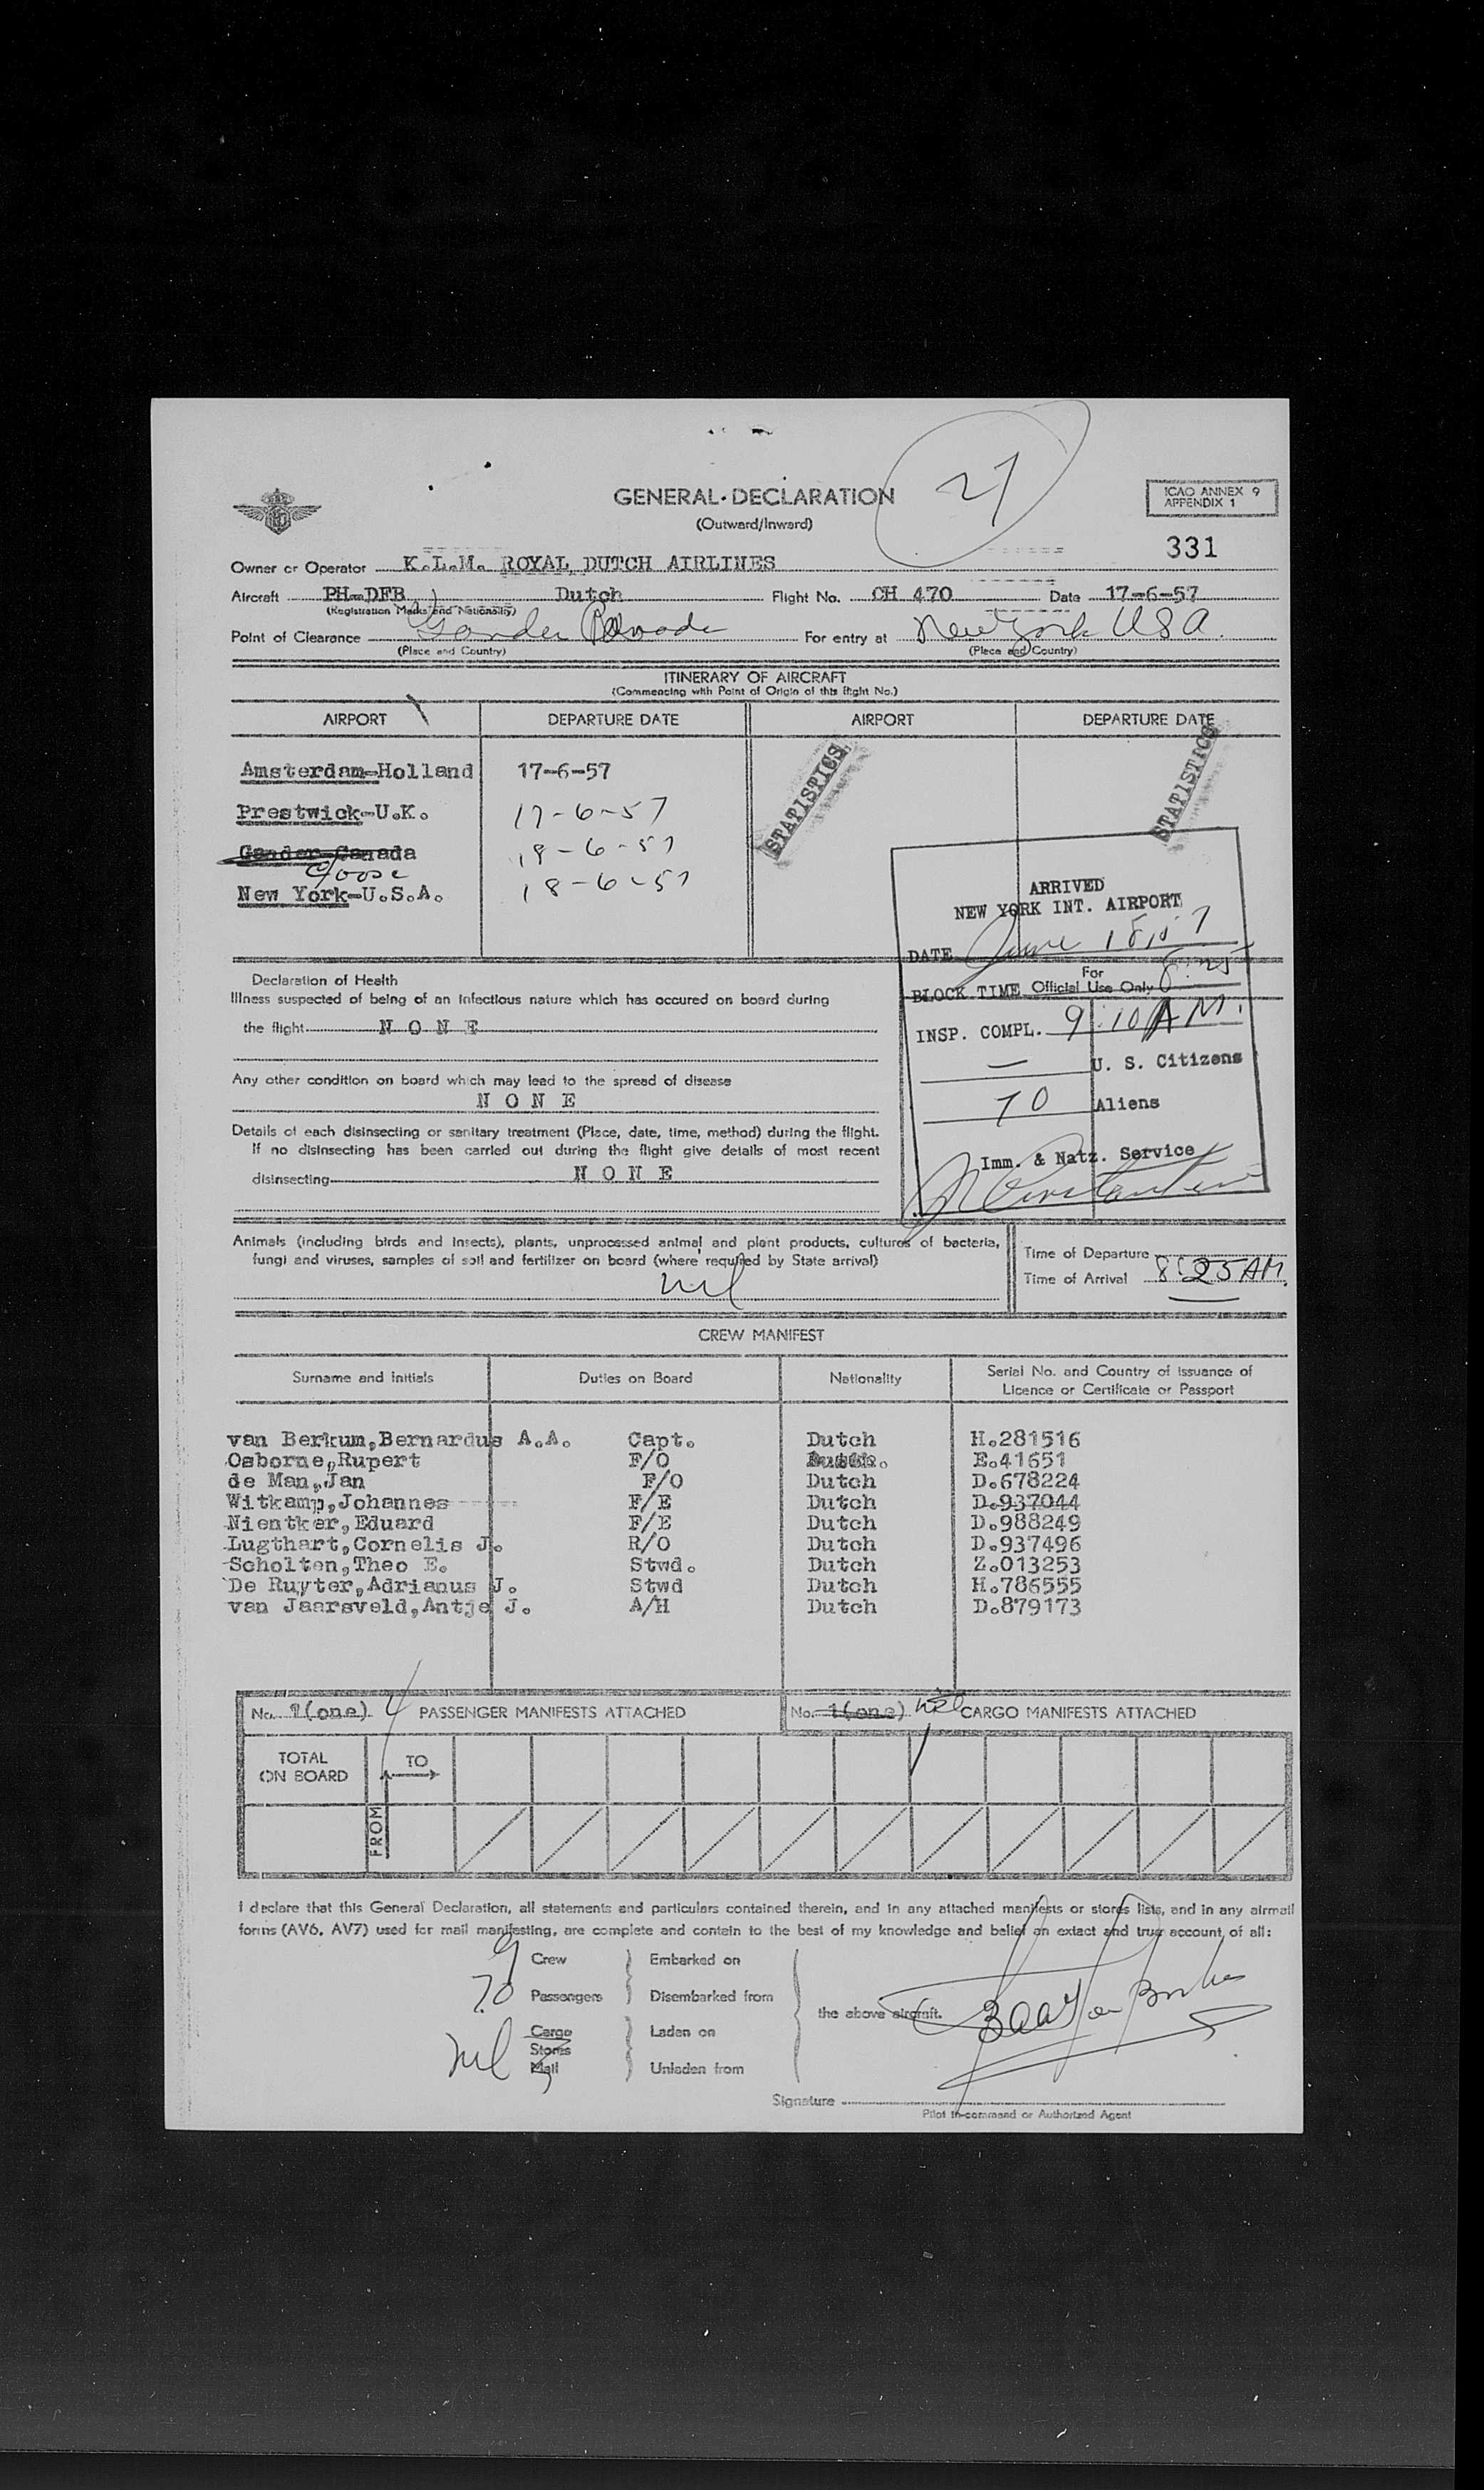 27
GENERAL-DECLARATION
(Outward/Inward)
ICAO ANNEX 9
APPENDIX 1
331
Owner or Operator K.L.M. ROYAL DUTCH AIRLINES
Aircraft PH-DFB Dutch Flight No. CH 470 Date 17-6-57
(Registration Marks and Nationality)
Point of Clearance Gander For entry at New York USA.
(Place and Country) (Place and Country)
ITINERARY OF AIRCRAFT
(Commencing with Point of Origin of this flight No.)
AIRPORT DEPARTURE DATE AIRPORT DEPARTURE DATE
Amsterdam-Holland 17-6-57
Prestwick-U.K. 17-6-57
Gander-Canada 18-6-57
Goose
New York-U.S.A. 18-6-57
STATISTICS
STATISTICS
ARRIVED
NEW YORK INT. AIRPORT
DATE June 18, 57
For
Official Use Only
BLOCK TIME 8:25
INSP. COMPL. 9:10 A M.
— U. S. Citizens
70 Aliens
Imm. & Natz. Service
Declaration of Health
Illness suspected of being of an infectious nature which has occured on board during
the flight N O N E
Any other condition on board which may lead to the spread of disease
N O N E
Details of each disinsecting or sanitary treatment (Place, date, time, method) during the flight.
If no disinsecting has been carried out during the flight give details of most recent
disinsecting N O N E
Animals (including birds and insects), plants, unprocessed animal and plant products, cultures of bacteria,
fungi and viruses, samples of soil and fertilizer on board (where required by State arrival)
nil
Time of Departure
Time of Arrival 8:25 AM.
CREW MANIFEST
Surname and Initials Duties on Board Nationality Serial No. and Country of Issuance of
Licence or Certificate or Passport
van Berkum,Bernardus A.A. Capt. Dutch H.281516
Osborne,Rupert F/O E.41651
de Man,Jan F/O Dutch D.678224
Witkamp,Johannes F/E Dutch D.937044
Nientker,Eduard F/E Dutch D.988249
Lugthart,Cornelis J. R/O Dutch D.937496
Scholten,Theo E. Stwd. Dutch Z.013253
De Ruyter,Adrianus J. Stwd Dutch H.786555
van Jaarsveld,Antje J. A/H Dutch D.879173
No. 1(one) 4 PASSENGER MANIFESTS ATTACHED
No. 1(one) nil CARGO MANIFESTS ATTACHED
TOTAL
ON BOARD
TO
FROM
I declare that this General Declaration, all statements and particulars contained therein, and in any attached manifests or stores lists, and in any airmail
forms (AV6, AV7) used for mail manifesting, are complete and contain to the best of my knowledge and belief an extact and true account of all:
9 Crew Embarked on
70 Passengers Disembarked from
the above aircraft.
nil Cargo Laden on
Stores
Mail Unladen from
Signature
Pilot in-command or Authorized Agent